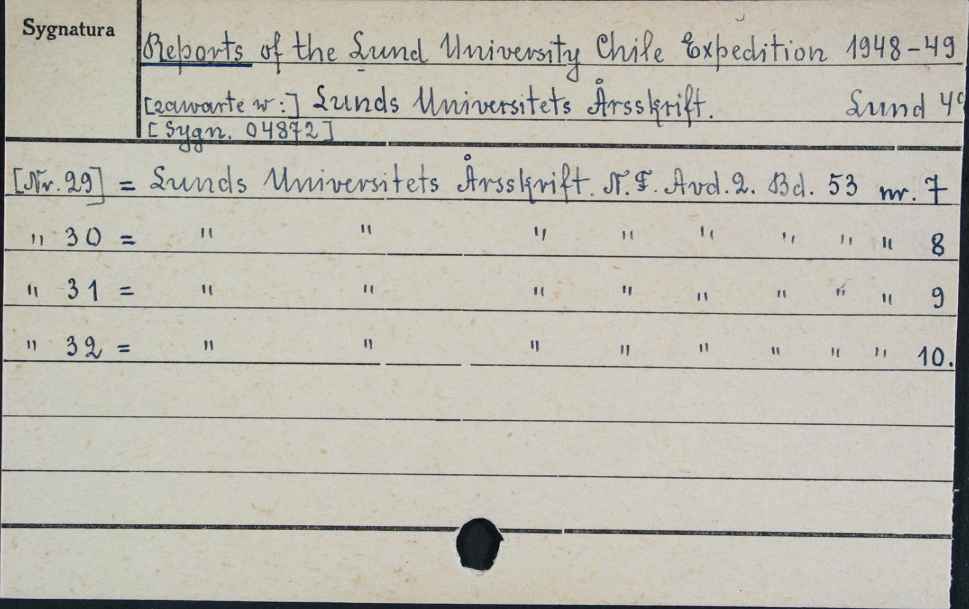 Sygnatura
Reports of the Lund University Chile Expedition 1948-49
[zawarte w:] Lunds Universitets Årsskrift. Lund 4°
[Sygn. 04872]
[Nr. 29] = Lunds Universitets Årsskrift. N.F. Avd. 2. Bd. 53 nr. 7
" 30 = " " " " " " " " 8
" 31 = " " " " " " " " 9
" 32 = " " " " " " " " 10.